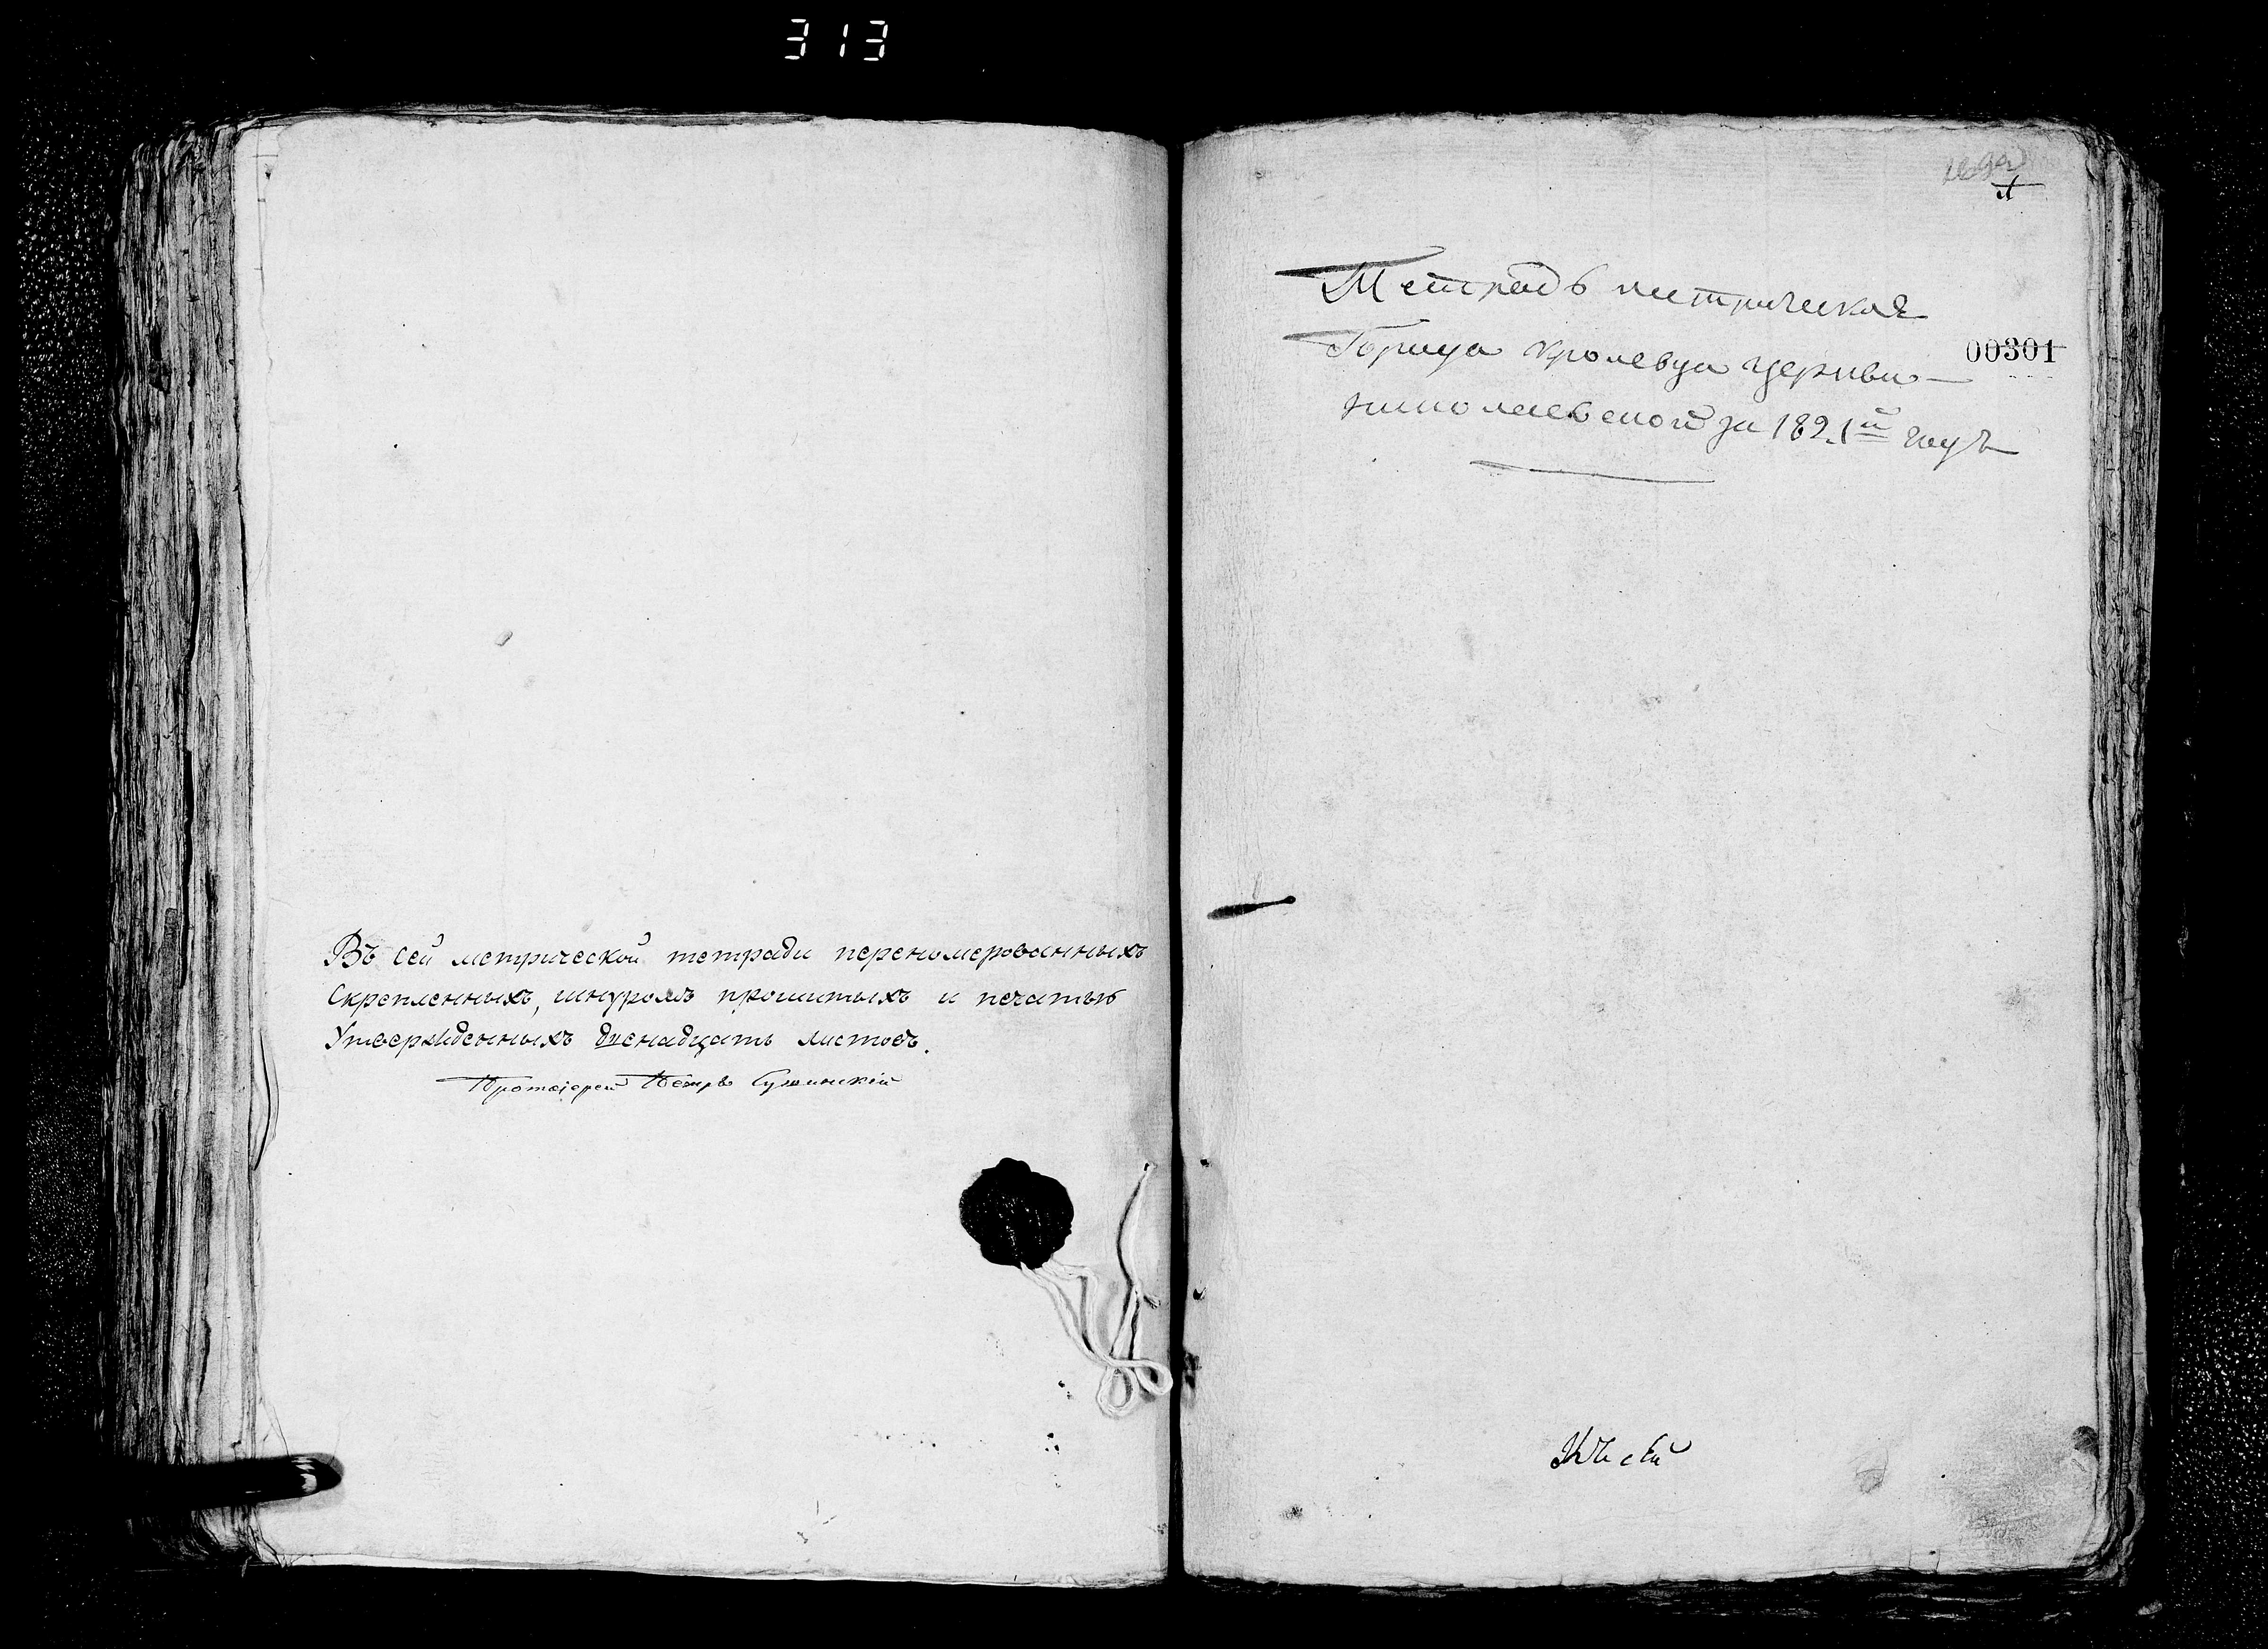 313
Въ сей метрической тетради переномерованныхъ
Скрепленныхъ, шнуромъ прошитыхъ и печатью
Утвержденныхъ двенадцать листовъ.
Протоіерей Петръ
Тетрадь метрическая
Города Кролевца Церкви
николаевской за 1821й годъ
00301
Къ сей